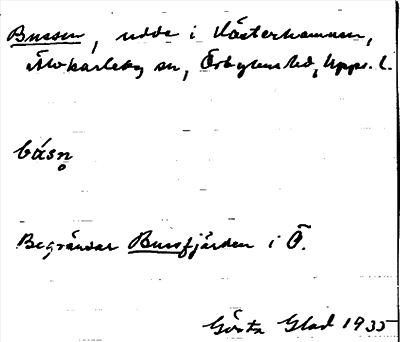 Bussen, udde i Västerhamnen,
Älvkarleby sn, Örbyhus hd, Upps. l.
básn̥
Begränsar Bussfjärden i Ö.
Gösta Glad 1935